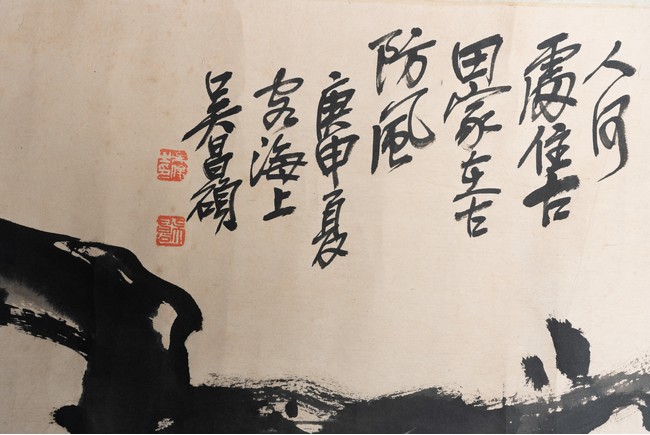 人何
處住古
田家在古
防風
庚申夏
客海上
吳昌碩